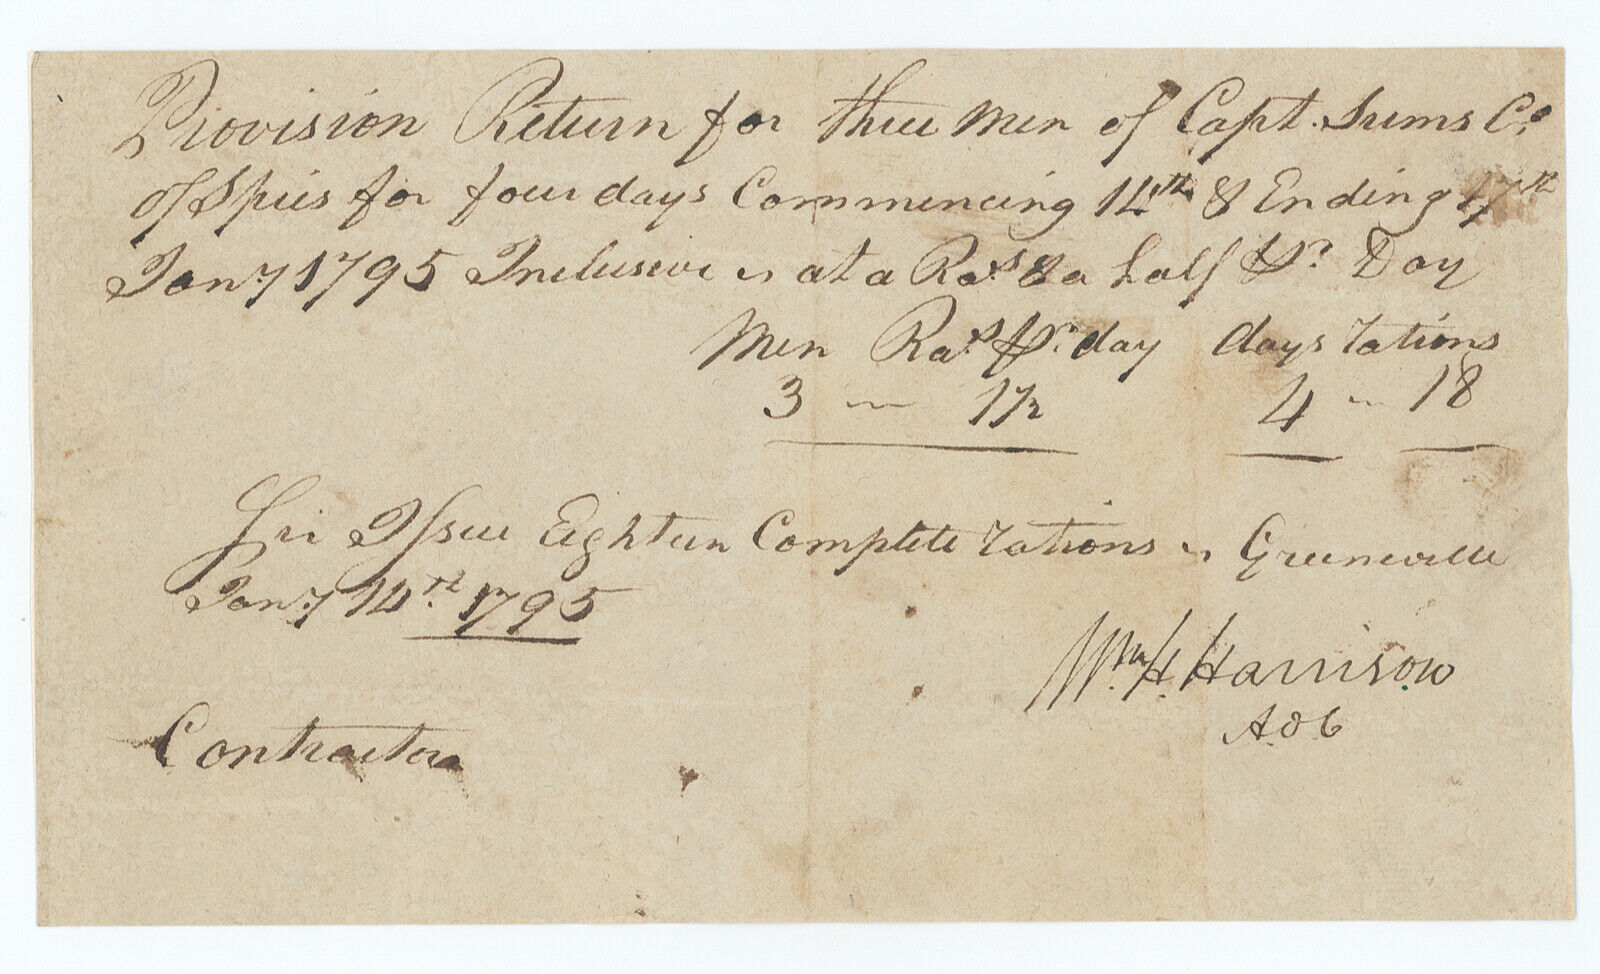 Provision Return for three men of Capt. Sums Co.
of Spies for four days Commencing 14th & Ending 17th
Jany 1795 Inclusive at a Ras & a half Pr. Day
Men Ras Pr. day days rations
3 — 1½ 4 — 18
Sir Issue Eighteen Complete rations Greeneville
Jany 14th 1795
Wm. H. Harrison
A D C
Contractor